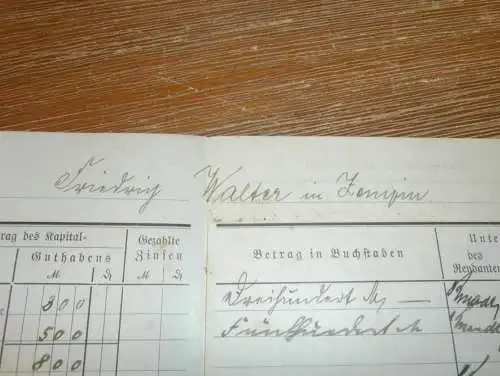 Friedrich Walter in Zempin
rag des Kapital-
Guthabens
M. Pf.
Gezahlte
Zinsen
M. Pf.
Betrag in Buchstaben
Unte
des
Rendanten
300
Dreihundert M
500
Fünfhundert M
800